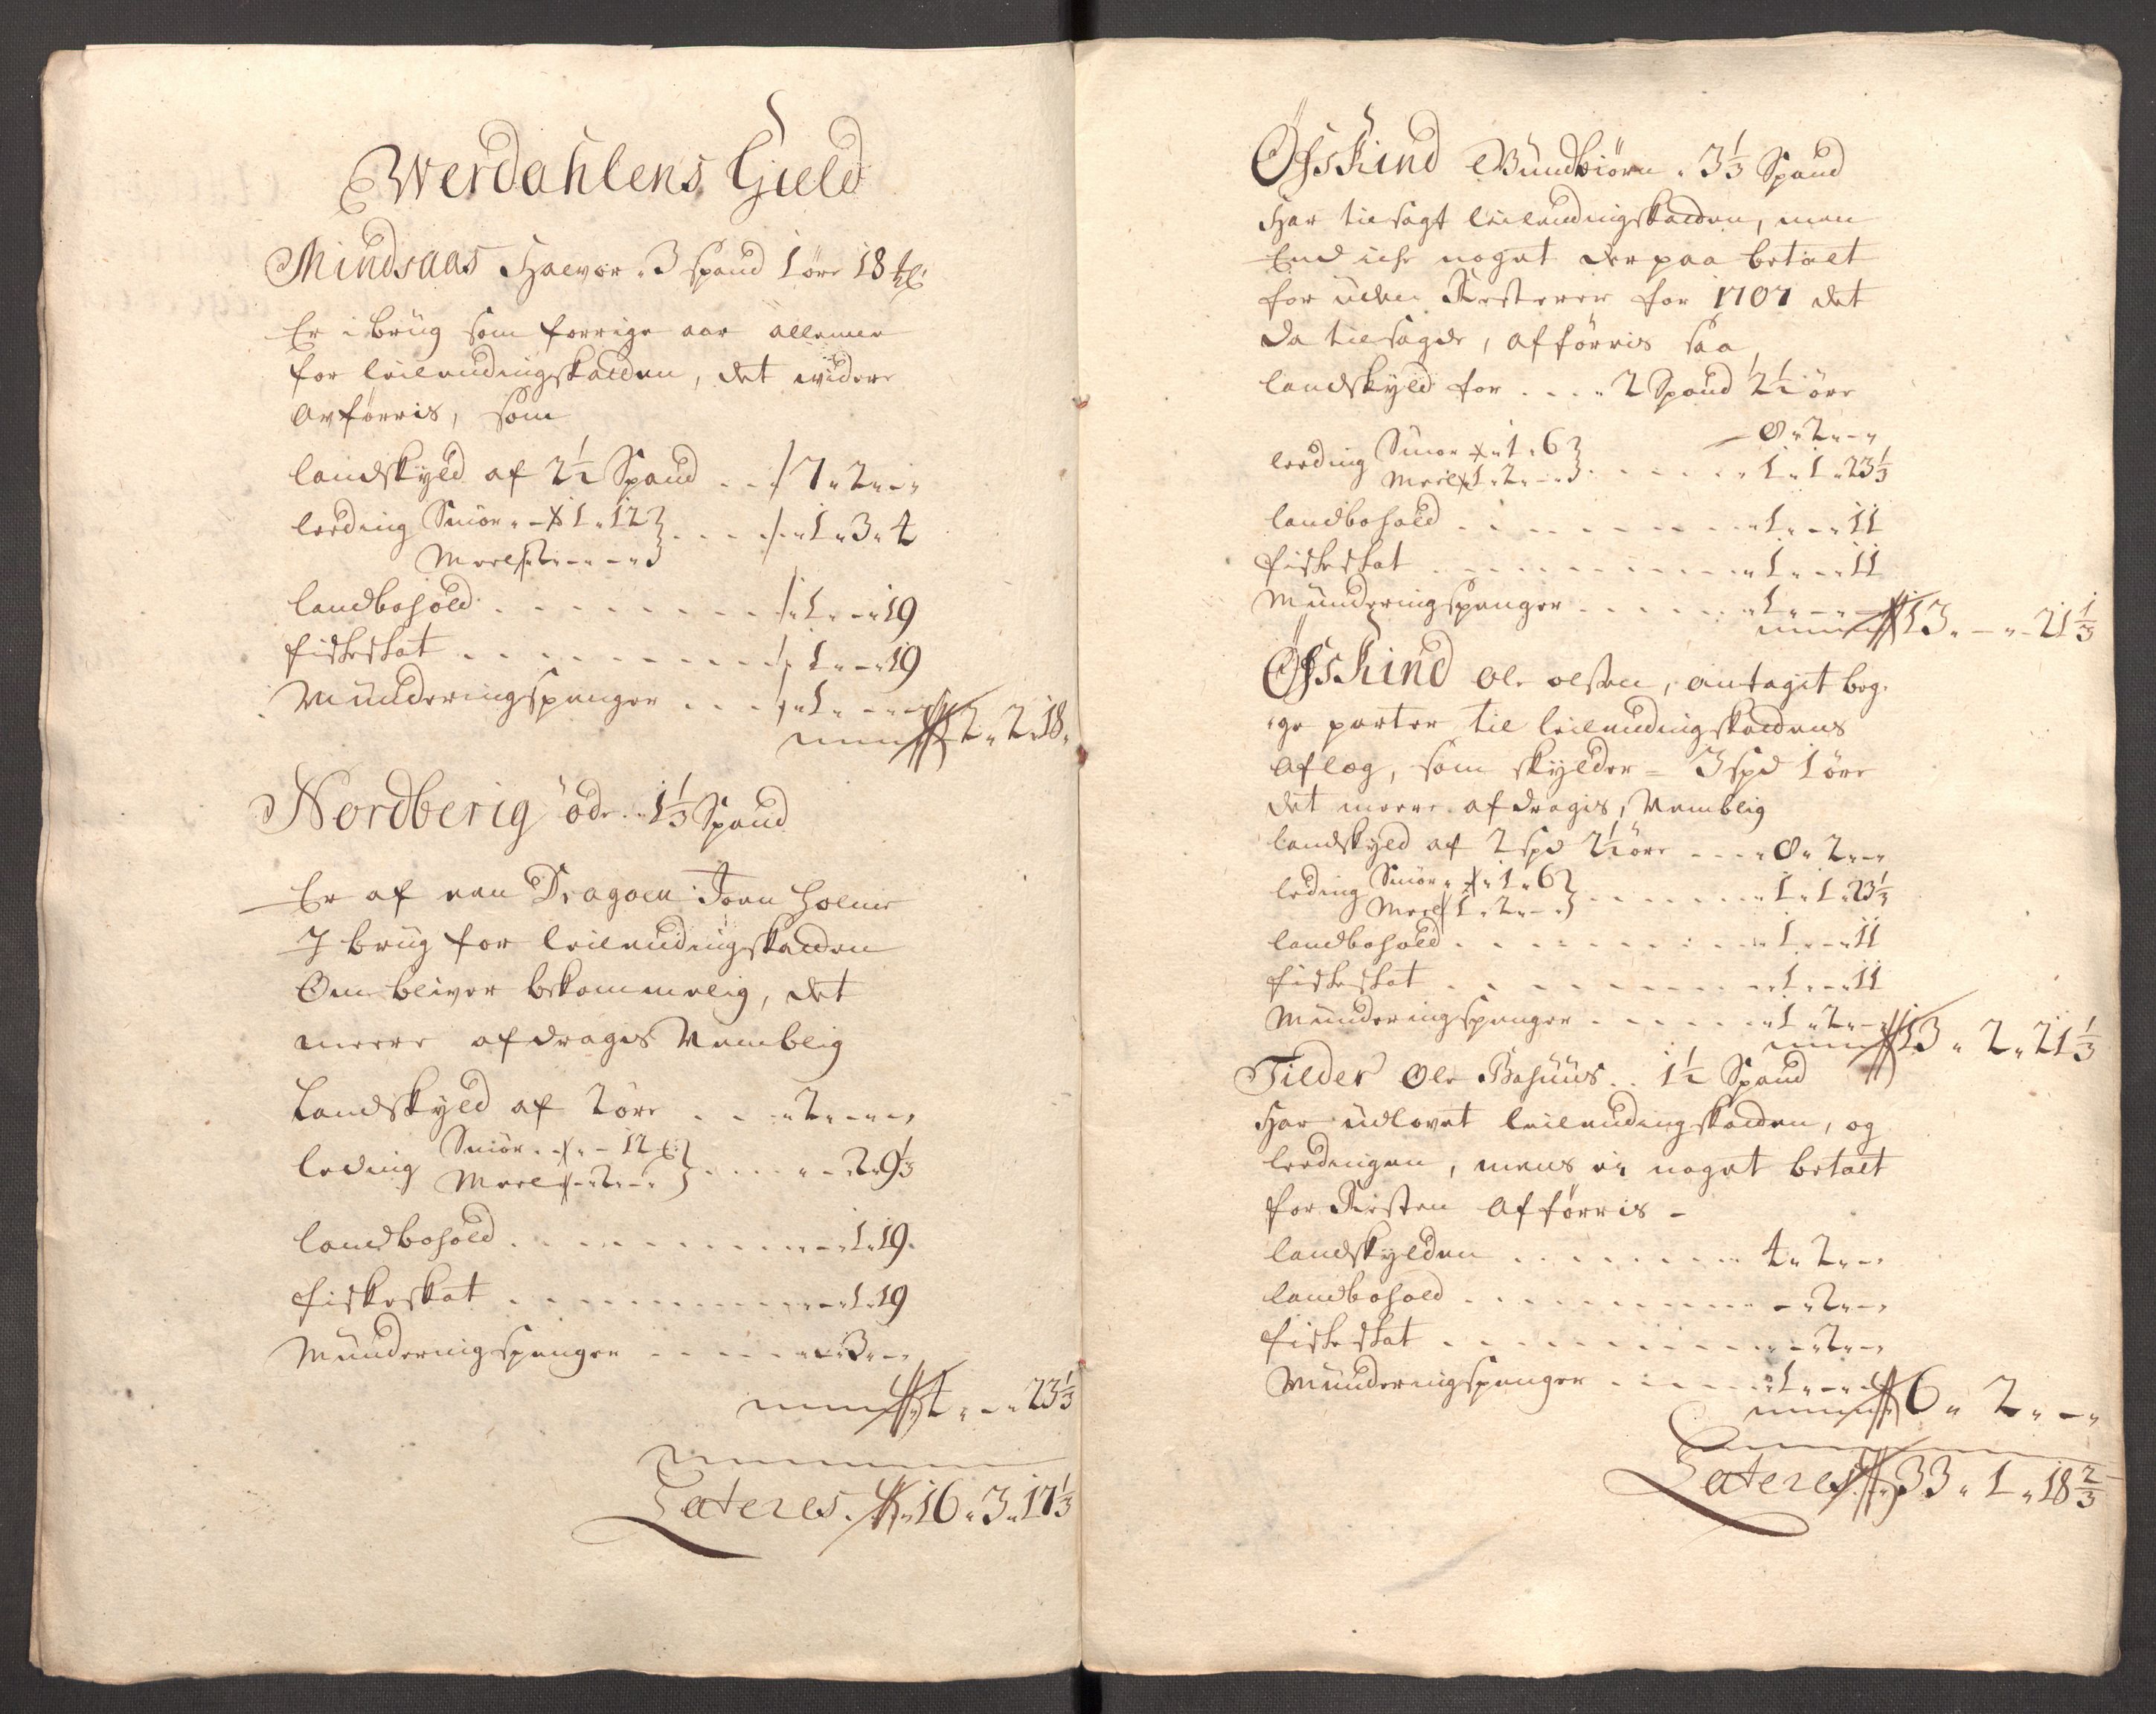 Werdahlens Gield
Mindsaas Halvor " 3 spand 1 øre 18 ℔
Er i brüg som forrige aar allene
for leilendingskatten, det widere
afførris, som
landskyld af 2½ Spand . . 7 " 2 " - "
leeding Smør " - 1 " 12
Meel " 2 " - " - " . . . . " 1 " 3 " 4
landbohold . . . . . . . . " 1 " - " 19
fiskeskat . . . . . . . . . " 1 " - " 19
Münderingspenger . . . " 1 " - " -
12 " 2 " 18 "
Nordberig øde " 1⅓ Spand
Er af een Dragoen Joen Holme
J brüg for leilendingskatten
Om bliver bekommelig, det
meere afdrages Nemblig
Landskyld af 2 øre . . . " 2 " - " - "
leding Smør " - " - 12
Meel " - " 2 " - " . . . . " - " 2 " 9⅓
landbohold . . . . . . . . . " - " 1 " 19 "
fiskeskat . . . . . . . . . " - " 1 " 19
Münderingspenger . . . . . " - " 3 " - "
4 " - " 23⅓
Lateres " 16 " 3 " 17⅓
Øfsskind Gundbiørn " 3⅓ Spand
Har tilsagt leilendingskatten, men
End iche noget der paa betalt
for uden Resterer for 1707 det
da tilsagde, afførris saa
landskyld for . . . " 2 Spand 2½ øre
- 8 " 2 " - "
leeding Smør " 1 " 6
Meel 1 " 2 " - " . . . . . . " 1 " 1 " 23⅓
landbohold . . . . . . . . " 1 " - " 11
fiskeskat . . . . . . . . . . " 1 " - " 11
Münderingspenger . . . . . " 1 " - " -
13 " - " - 21⅓
Øfsskind Ole olsen, antagit beg-
"ge parter til leilendingskattens
aflæg, som skylder = 3 spd 1 øre
det meere afdragis, Nemblig
landskyld af 2 spd 2½ øre . . . " 8 " 2 " - "
leding Smør " - " 1 " 6
Meel 1 " 2 " - " . . . . . . " 1 " 1 " 23⅓
landbohold . . . . . . . . . " 1 " - " 11
fiskeskat . . . . . . . . . " 1 " - " 11
Münderingspenger . . . . . . " 1 " 2 " - "
13 " 2 " 21⅓
Tilder Ole Bahuus . . 1½ Spand
Har udlovet leilendingskatten, og
leedingen, mens ei noget betalt
for Resten afførris -
landskylden . . . . . . . . 4 " 2 " - "
landbohold . . . . . . . . . . - " 2 " - "
fiskeskat . . . . . . . . . . . - " 2 " - "
Münderingspenger . . . . . " 1 " - " -
6 " 2 " - "
Lateres " 33 " 1 " 18⅔